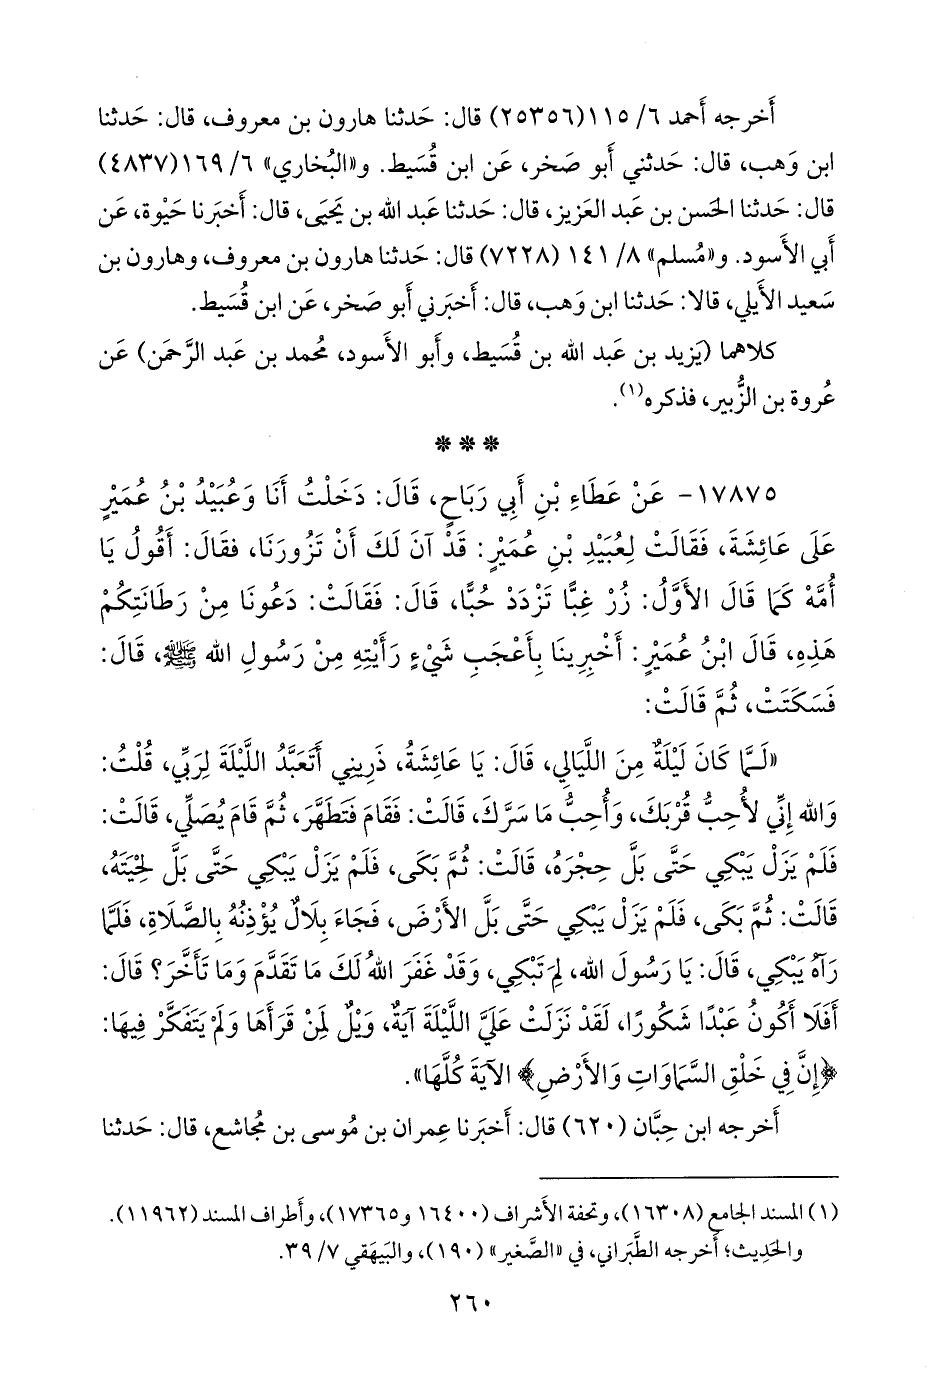 أَخرجه أَحمد ٦/ ١١٥(٢٥٣٥٦) قال: حَدثنا هارون بن معروف، قال: حَدثنا
ابن وَهب، قال: حَدثني أَبو صَخر، عَن ابن قُسَيط. و«البُخاري» ٦/ ١٦٩(٤٨٣٧)
قال: حَدثنا الحَسن بن عَبد العَزيز، قال: حَدثنا عَبد الله بن يَحيَى، قال: أَخبَرنا حَيْوة، عَن
أَبي الأَسود. و«مُسلم» ٨/ ١٤١ (٧٢٢٨) قال: حَدثنا هارون بن معروف، وهارون بن
سَعيد الأَيلي، قالا: حَدثنا ابن وَهب، قال: أَخبَرني أَبو صَخر، عَن ابن قُسَيط.
كلاهما (يَزيد بن عَبد الله بن قُسَيط، وأَبو الأَسود، مُحمد بن عَبد الرَّحمَن) عَن
عُروة بن الزُّبير، فذكره(١).
* * *
١٧٨٧٥- عَنْ عَطَاءِ بْنِ أَبِي رَبَاحٍ، قَالَ: دَخَلْتُ أَنَا وَعُبَيْدُ بْنُ عُمَيْرٍ
عَلَى عَائِشَةَ، فَقَالَتْ لِعُبَيْدِ بْنِ عُمَيْرٍ: قَدْ آنَ لَكَ أَنْ تَزُورَنَا، فقَالَ: أَقُولُ يَا
أُمَّهْ كَمَا قَالَ الأَوَّلُ: زُرْ غِبًّا تَزْدَدْ حُبًّا، قَالَ: فَقَالَتْ: دَعُونَا مِنْ رَطَانَتِكُمْ
هَذِهِ، قَالَ ابْنُ عُمَيْرٍ: أَخْبِرِينَا بِأَعْجَبِ شَيْءٍ رَأَيْتِهِ مِنْ رَسُولِ الله ﷺ، قَالَ:
فَسَكَتَتْ، ثُمَّ قَالَتْ:
«لَـمَّا كَانَ لَيْلَةٌ مِنَ اللَّيَالِي، قَالَ: يَا عَائِشَةُ، ذَرِينِي أَتَعَبَّدُ اللَّيْلَةَ لِرَبِّي، قُلْتُ:
وَالله إِنِّي لأُحِبُّ قُرْبَكَ، وَأُحِبُّ مَا سَرَّكَ، قَالَتْ: فَقَامَ فَتَطَهَّرَ، ثُمَّ قَامَ يُصَلِّي، قَالَتْ:
فَلَمْ يَزَلْ يَبْكِي حَتَّى بَلَّ حِجْرَهُ، قَالَتْ: ثُمَّ بَكَى، فَلَمْ يَزَلْ يَبْكِي حَتَّى بَلَّ لِحْيَتَهُ،
قَالَتْ: ثُمَّ بَكَى، فَلَمْ يَزَلْ يَبْكِي حَتَّى بَلَّ الأَرْضَ، فَجَاءَ بِلَالٌ يُؤْذِنُهُ بِالصَّلَاةِ، فَلَمَّا
رَآهُ يَبْكِي، قَالَ: يَا رَسُولَ الله، لِمَ تَبْكِي، وَقَدْ غَفَرَ اللهُ لَكَ مَا تَقَدَّمَ وَمَا تَأَخَّرَ؟ قَالَ:
أَفَلَا أَكُونُ عَبْدًا شَكُورًا، لَقَدْ نَزَلَتْ عَلَيَّ اللَّيْلَةَ آيَةٌ، وَيْلٌ لِمَنْ قَرَأَهَا وَلَمْ يَتَفَكَّرْ فِيهَا:
﴿إِنَّ فِي خَلْقِ السَّمَاوَاتِ وَالأَرْضِ﴾ الآيَةَ كُلَّهَا».
أَخرجه ابن حِبَّان (٦٢٠) قال: أَخبَرنا عِمران بن مُوسى بن مُجاشع، قال: حَدثنا
(١) المسند الجامع (١٦٣٠٨)، وتحفة الأَشراف (١٦٤٠٠ و١٧٣٦٥)، وأَطراف المسند (١١٩٦٢).
والحَدِيث؛ أَخرجه الطَّبَراني، في «الصَّغير» (١٩٠)، والبَيهَقي ٧/ ٣٩.
٢٦٠